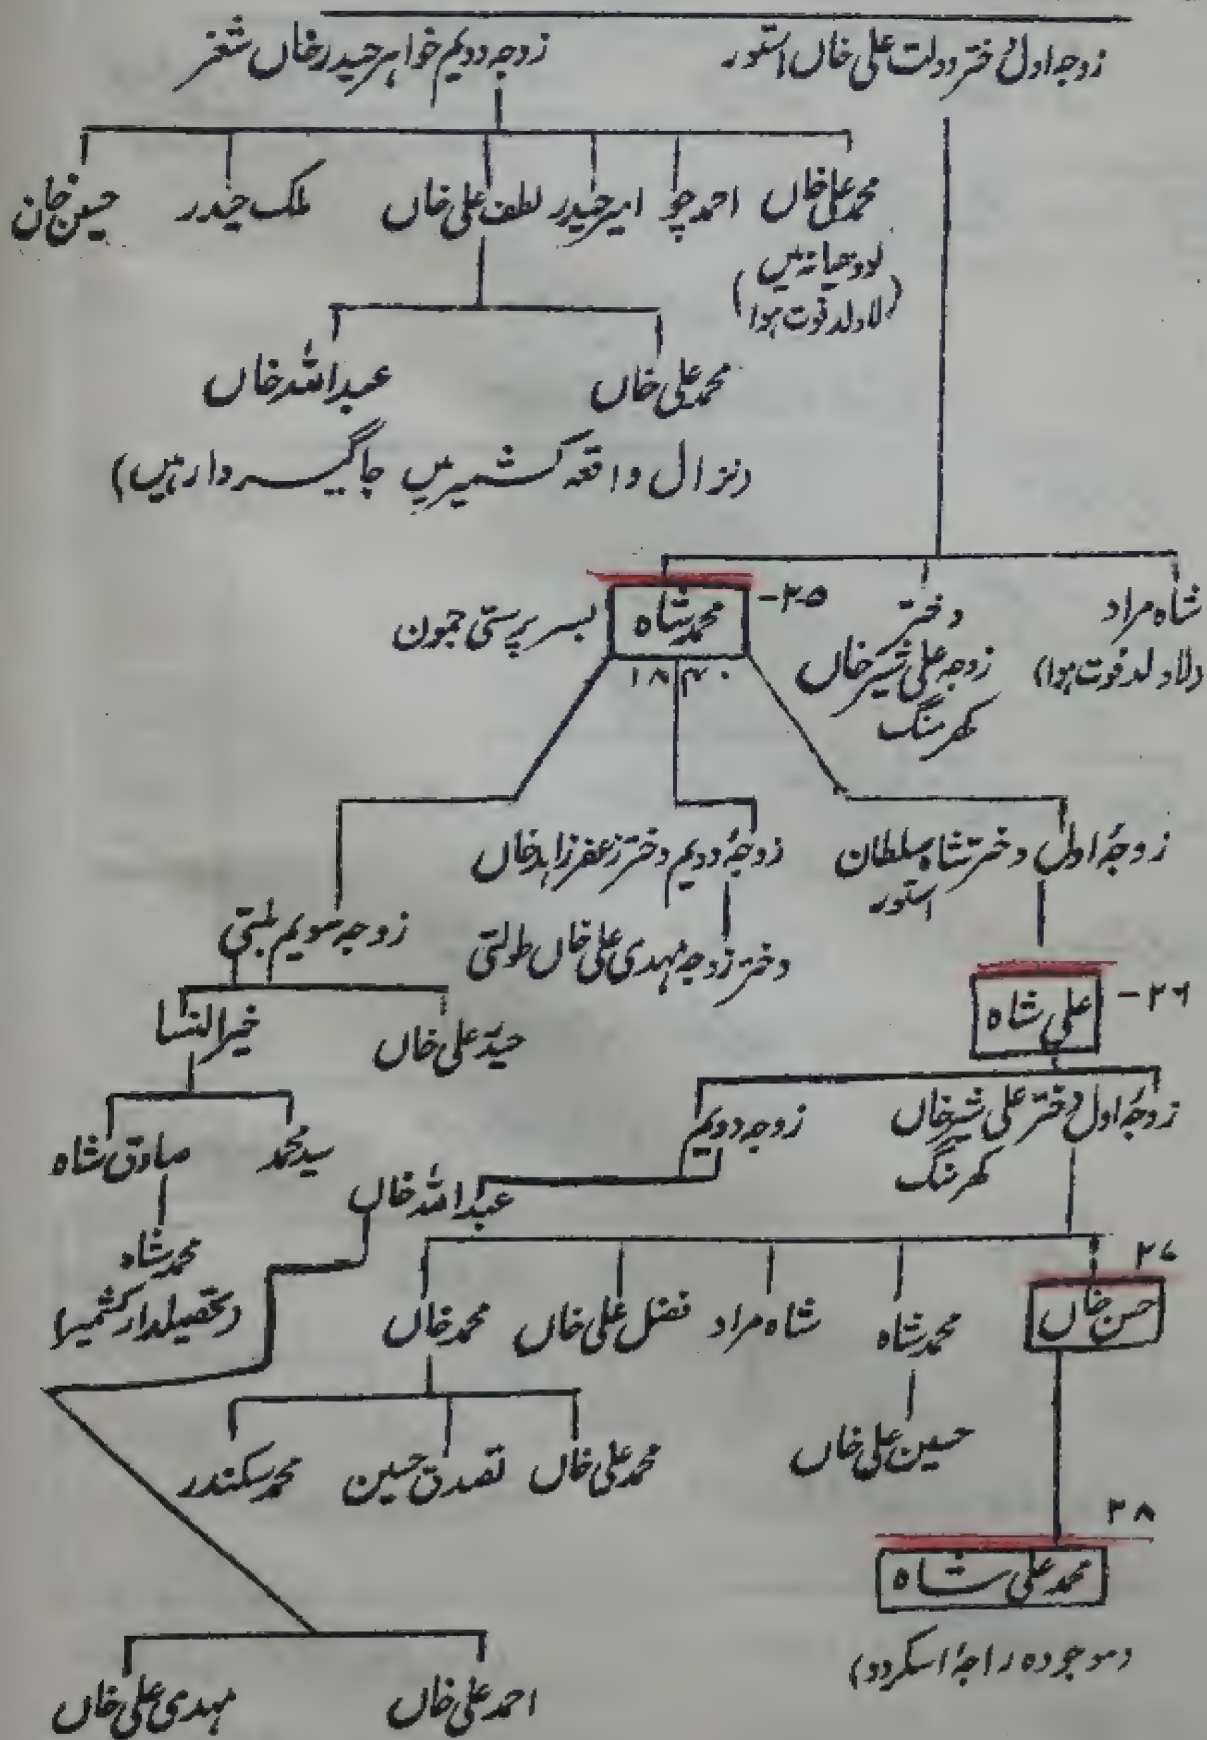 زوجہ اول دختر دولت علی خاں استور
زوجہ دویم خواہر حیدر خاں شغر
محمد علی خاں
(لودھیانہ میں
لاولد فوت ہوا)
احمد چو
امیر حیدر
لطف علی خاں
ملک حیدر
حسین خان
محمد علی خاں
عبداللہ خاں
(نزال واقعہ کشمیر میں جاگیردار ہیں)
شاہ مراد
(لاولد فوت ہوا)
دختر
زوجہ علی شیر خاں
کھرمنگ
۲۵-
محمد شاہ
۱۸۴۰
بسرپرستی جموں
زوجۂ اول دختر شاہ سلطان
استور
زوجۂ دویم دختر زعفر زاہد خاں
دختر زوجہ مہدی علی خاں طولتی
زوجہ سویم بلتی
حیدر علی خاں
خیرالنسا
سید محمد
صادق شاہ
محمد شاہ
(تحصیلدار کشمیر)
۲۶-
علی شاہ
زوجۂ اول دختر علی شیر خاں
کھرمنگ
زوجہ دویم
عبداللہ خاں
۲۷
حسن خاں
محمد شاہ
شاہ مراد
فضل علی خاں
محمد خاں
حسین علی خاں
محمد علی خاں
تصدق حسین
محمد سکندر
۲۸
محمد علی شاہ
(موجودہ راجۂ اسکردو)
احمد علی خاں
مہدی علی خاں